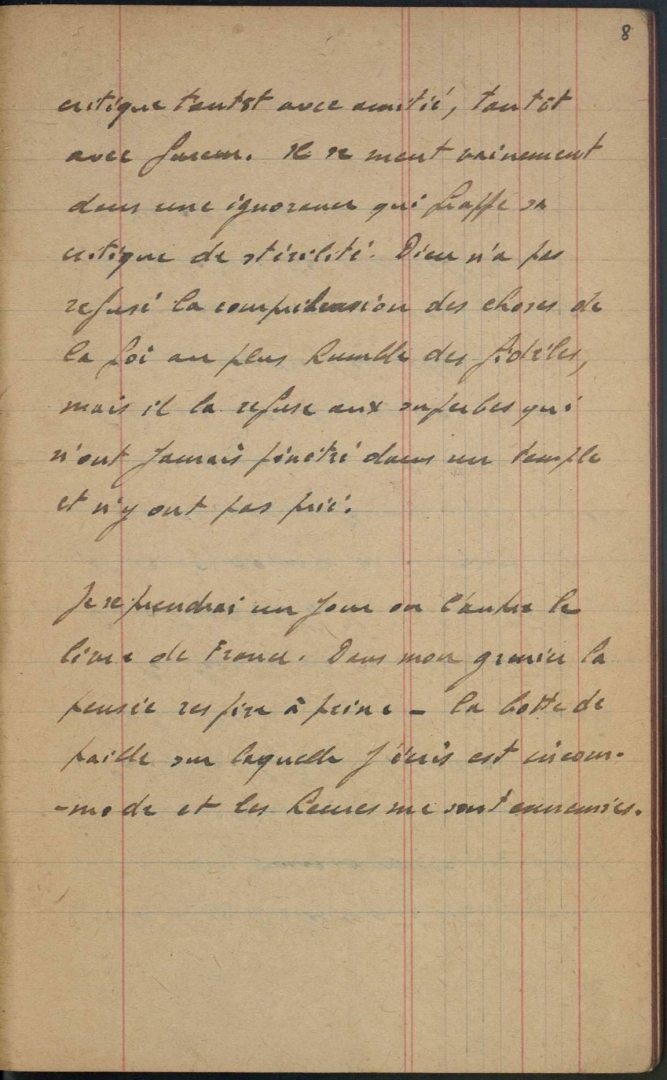 8
critique tantôt avec amitié, tantôt
avec fureur. Il se meut vainement
dans une ignorance qui frappe sa
critique de stérilité. Dieu n'a pas
refusé la compréhension des choses de
la foi au plus humble des fidèles,
mais il la refuse aux superbes qui
n'ont jamais pénétré dans un temple
et n'y ont pas prié.
Je reprendrai un jour ou l'autre le
livre de France. Dans mon grenier la
pensée respire à peine - la botte de
paille sur laquelle j'écris est incom-
-mode et les heures me sont ennemies.